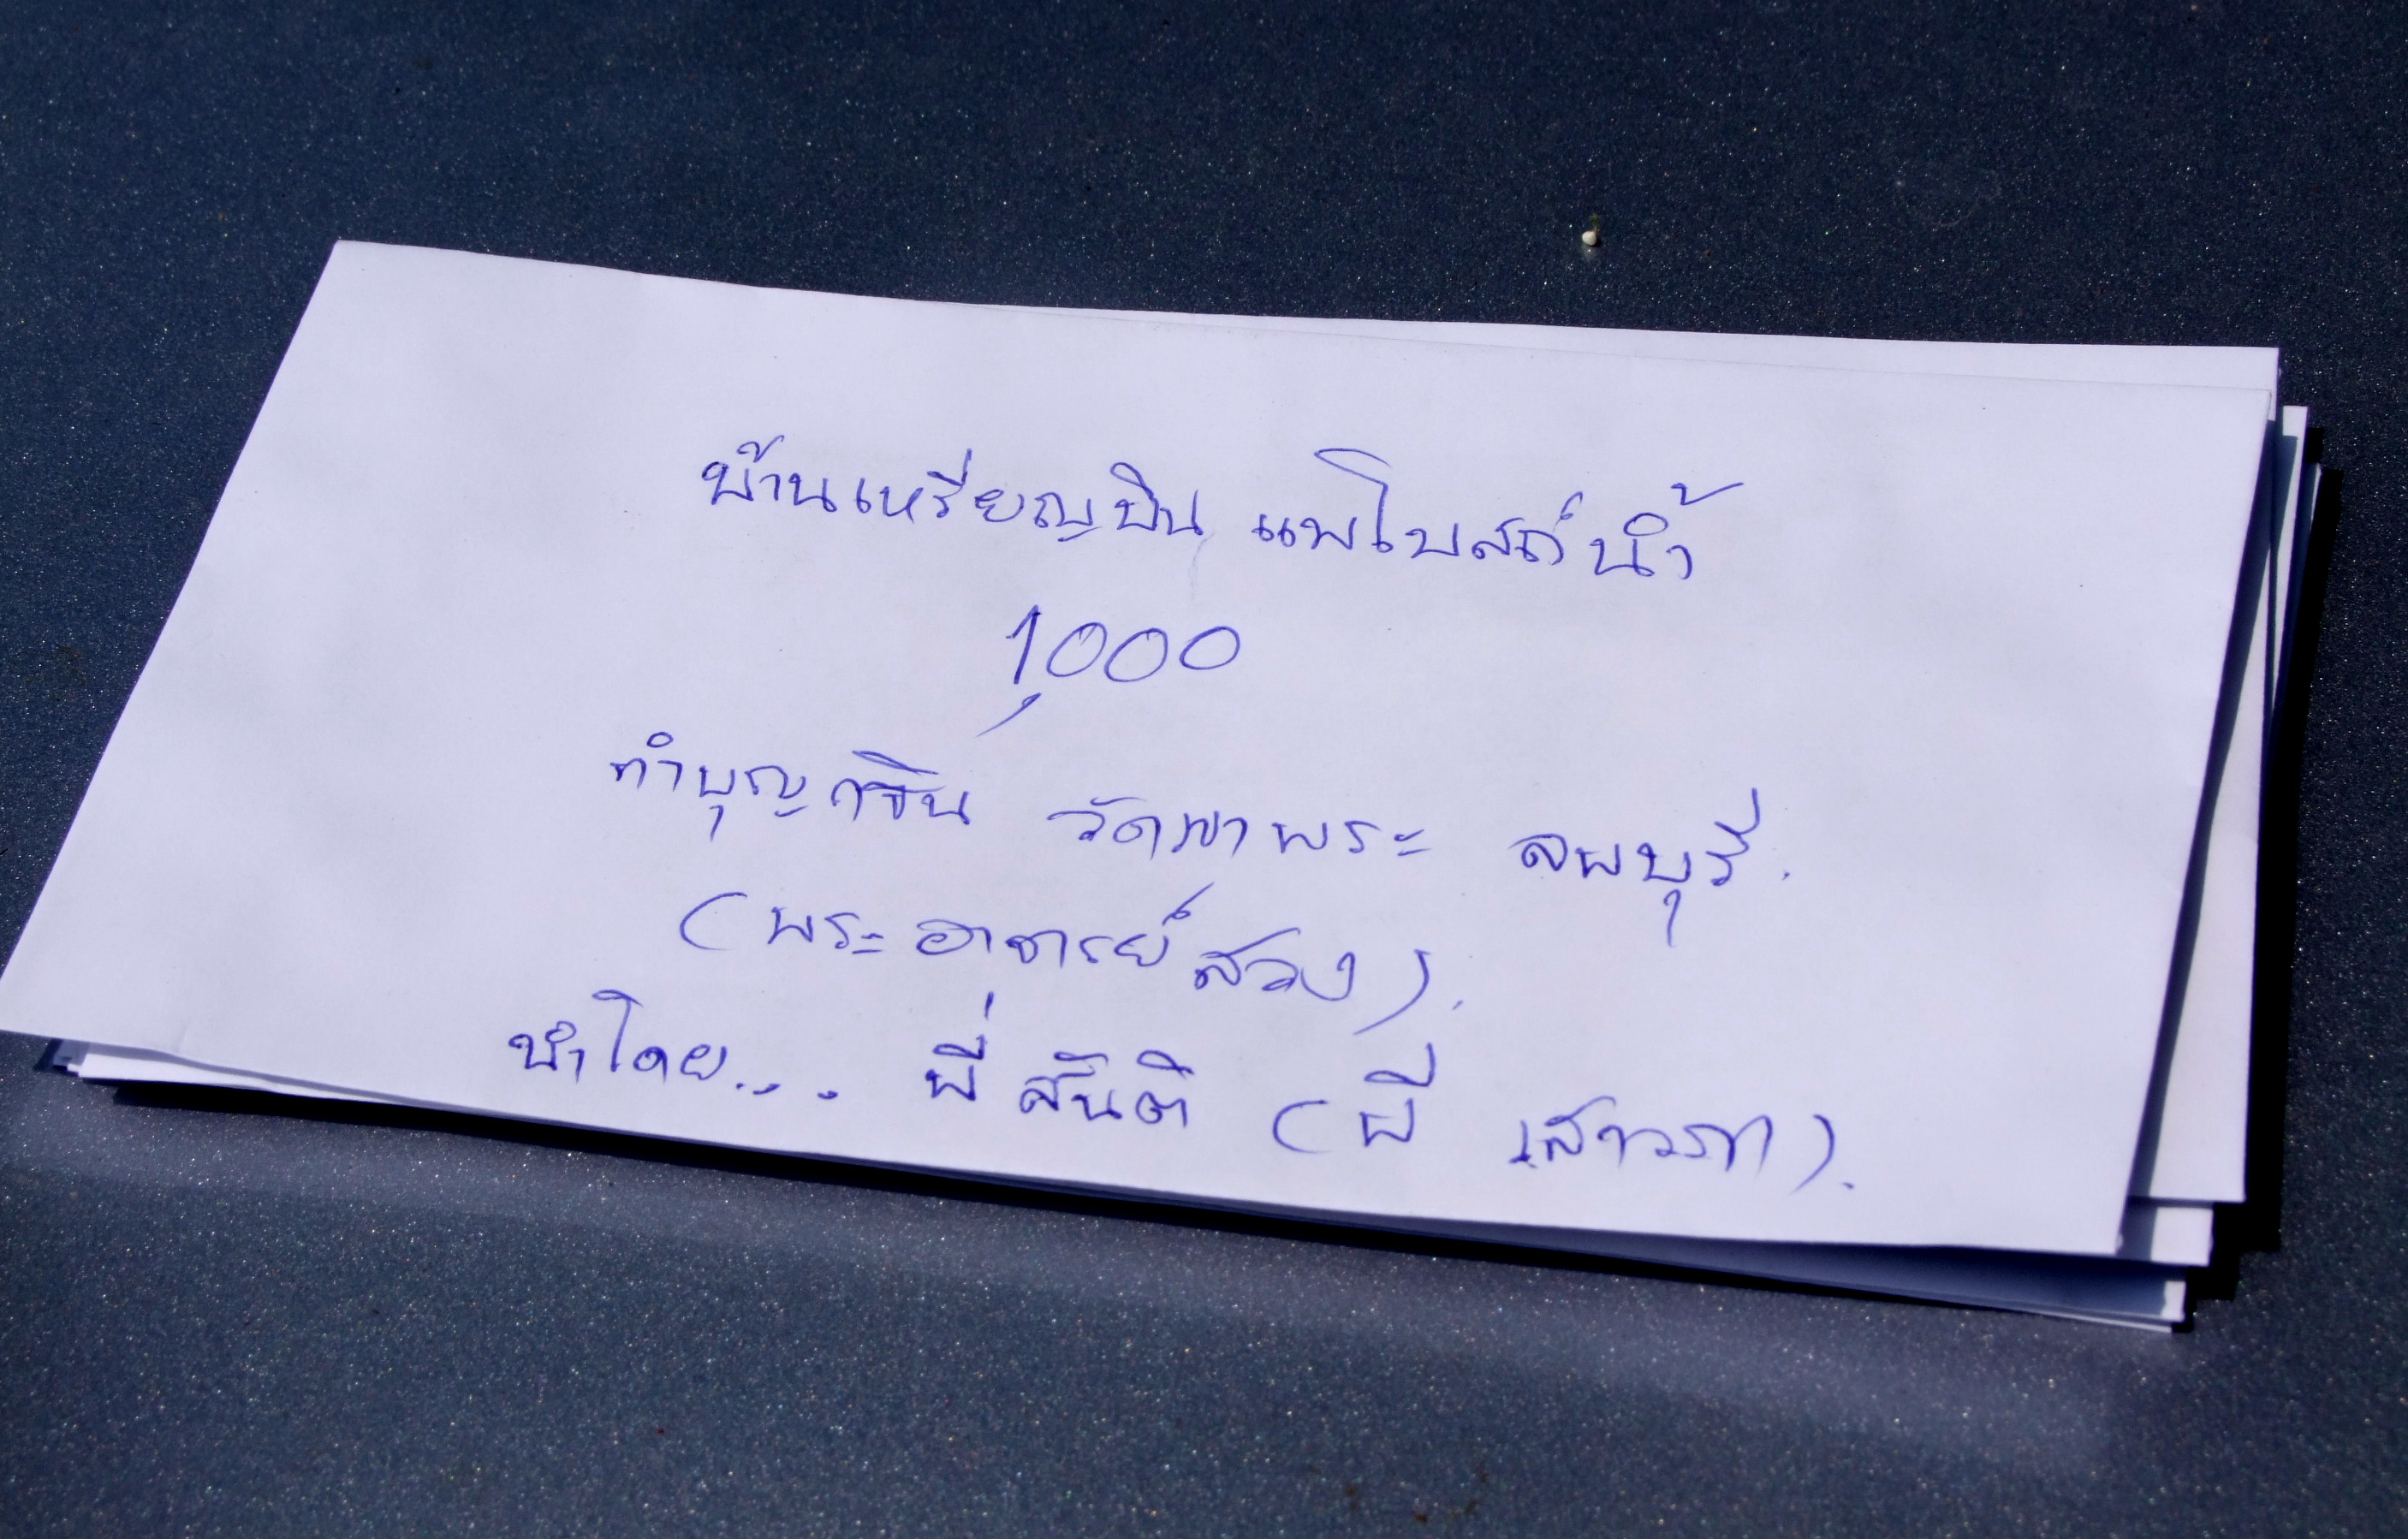 บ้านเหรียญบิน แพโบสถ์น้ำ
1,000
ทำบุญกฐิน วัดเขาพระ ลพบุรี.
(พระอาจารย์สวง).
นำโดย... พี่สันติ (พี่ เสาวภา).